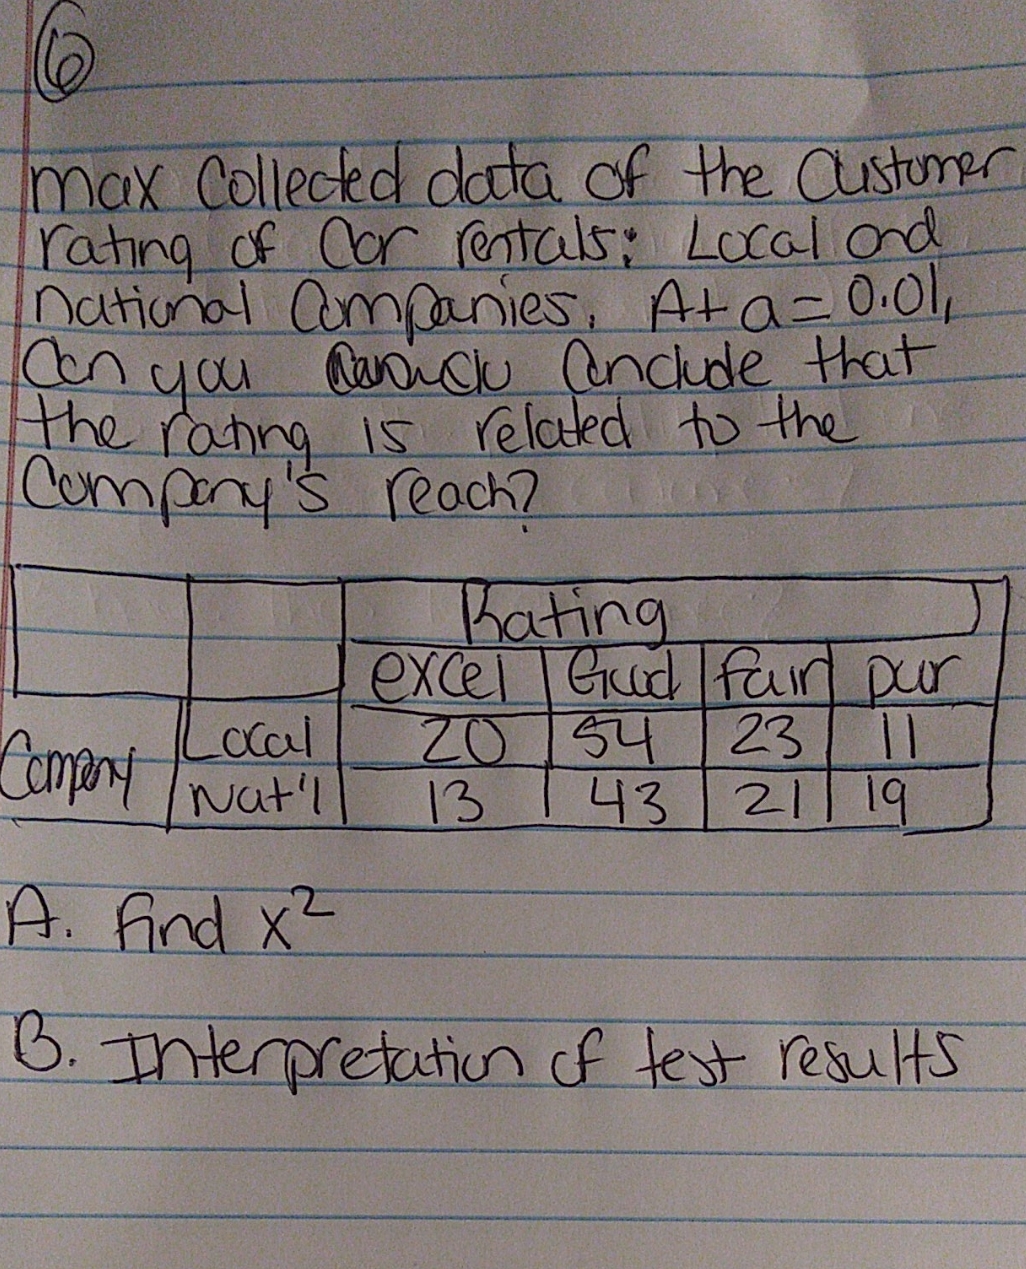 6
max Collected data of the Customer
rating of Car rentals: Local and
national Companies. At a = 0.01,
Can you conclude that
the rating is related to the
Company's reach?
Rating
excel Good fair poor
Local 20 54 23 11
Company Nat'l 13 43 21 19
A. find x²
B. Interpretation of test results